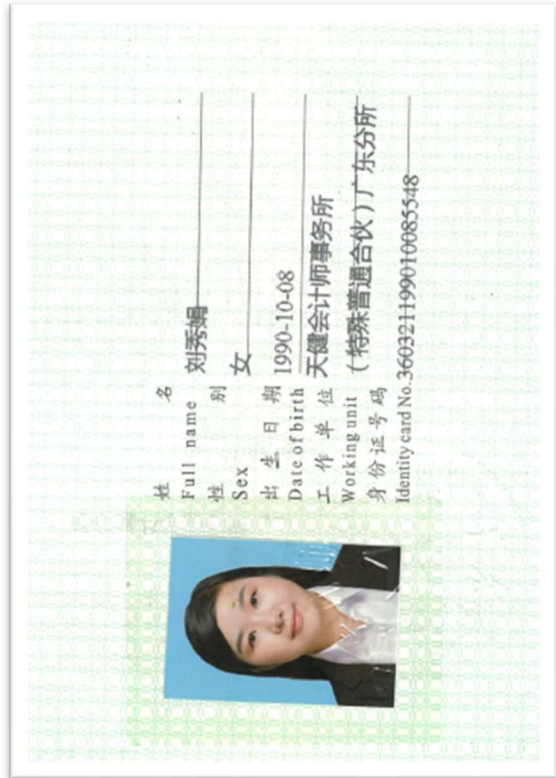 姓 名 刘秀娟
Full name
性 别 女
Sex
出 生 日 期 1990-10-08
Date of birth
工 作 单 位 天健会计师事务所
Working unit （特殊普通合伙）广东分所
身 份 证 号 码
Identity card No. 360321199010085548